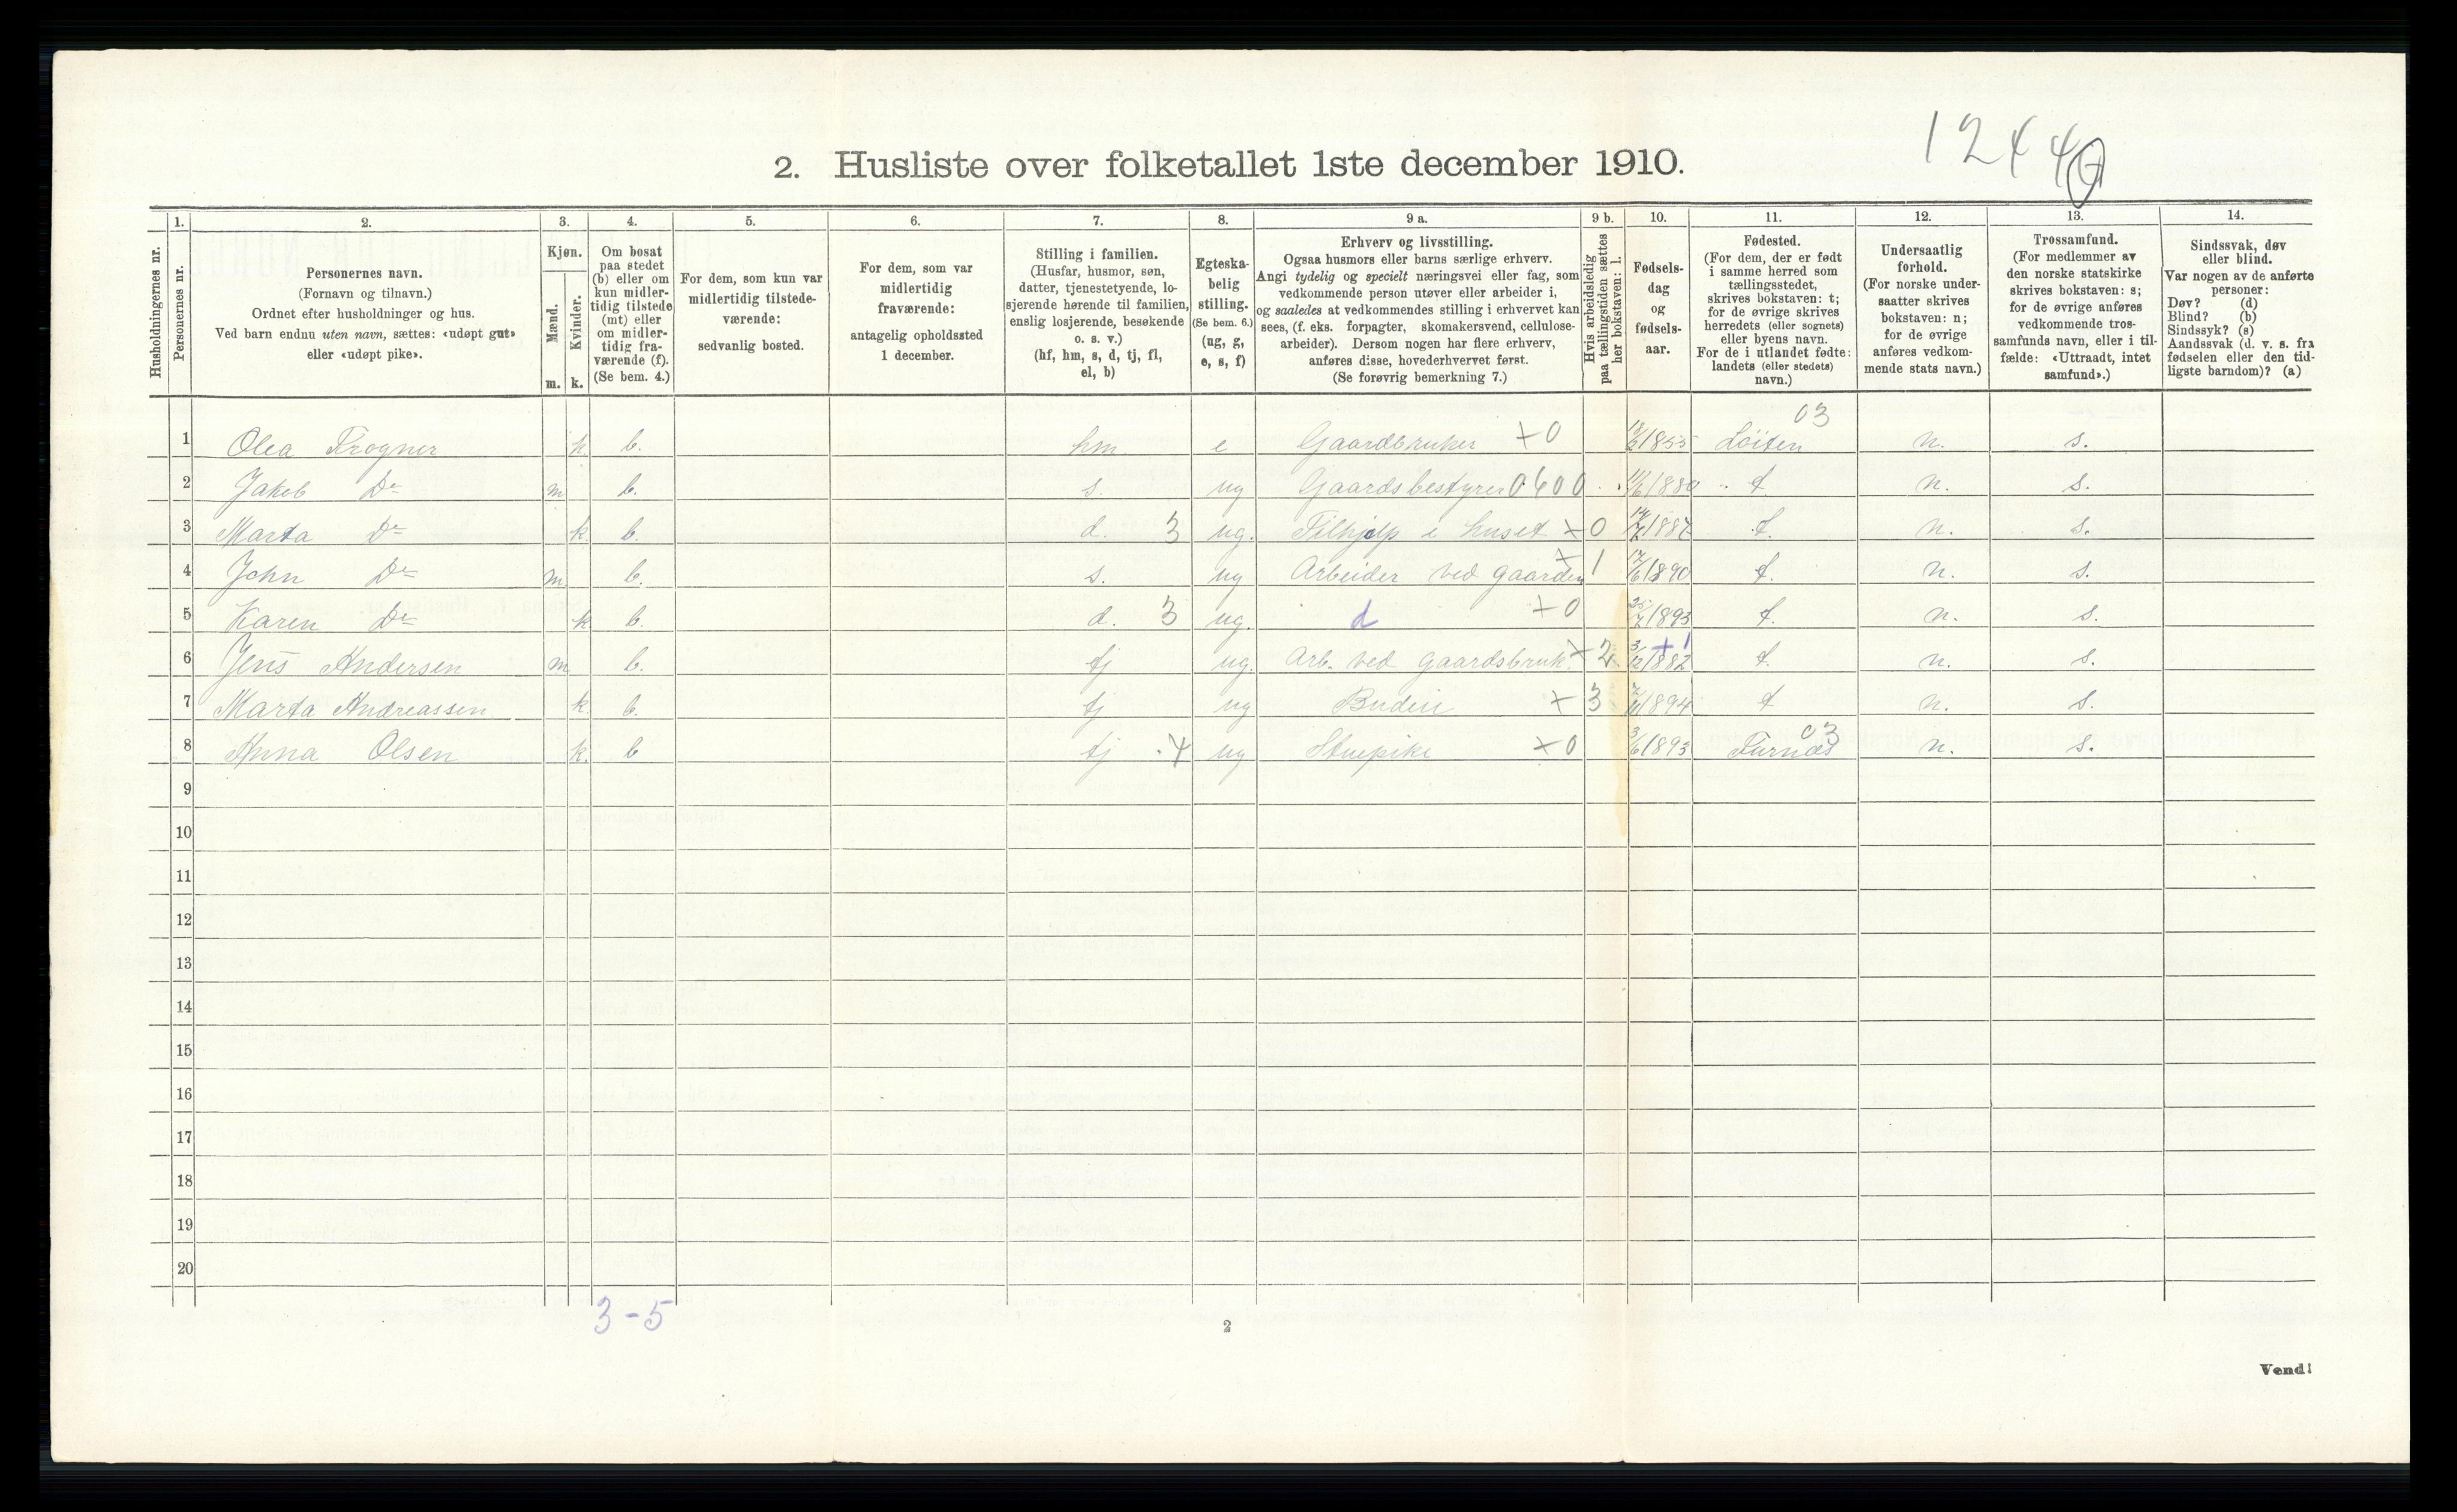 12440
2. Husliste over folketallet 1ste december 1910.
Husholdningernes nr.
1. Personernes nr.
2. Personernes navn.
(Fornavn og tilnavn.)
Ordnet efter husholdninger og hus.
Ved barn endnu uten navn, sættes: «udøpt gut»
eller «udøpt pike».
3. Kjøn.
Mænd. m.
Kvinder. k.
4. Om bosat
paa stedet
(b) eller om
kun midler-
tidig tilstede
(mt) eller
om midler-
tidig fra-
værende (f).
(Se bem. 4.)
5. For dem, som kun var
midlertidig tilstede-
værende:
sedvanlig bosted.
6. For dem, som var
midlertidig
fraværende:
antagelig opholdssted
1 december.
7. Stilling i familien.
(Husfar, husmor, søn,
datter, tjenestetyende, lo-
sjerende hørende til familien,
enslig losjerende, besøkende
o. s. v.)
(hf, hm, s, d, tj, fl,
el, b)
8. Egteska-
belig
stilling.
(Se bem. 6.)
(ug, g,
e, s, f)
9 a. Erhverv og livsstilling.
Ogsaa husmors eller barns særlige erhverv.
Angi tydelig og specielt næringsvei eller fag, som
vedkommende person utøver eller arbeider i,
og saaledes at vedkommendes stilling i erhvervet kan
sees, (f. eks. forpagter, skomakersvend, cellulose-
arbeider). Dersom nogen har flere erhverv,
anføres disse, hovederhvervet først.
(Se forøvrig bemerkning 7.)
9 b. Hvis arbeidsledig
paa tællingstiden sættes
her bokstaven: l.
10. Fødsels-
dag
og
fødsels-
aar.
11. Fødested.
(For dem, der er født
i samme herred som
tællingsstedet,
skrives bokstaven: t;
for de øvrige skrives
herredets (eller sognets)
eller byens navn.
For de i utlandet fødte:
landets (eller stedets)
navn.)
12. Undersaatlig
forhold.
(For norske under-
saatter skrives
bokstaven: n;
for de øvrige
anføres vedkom-
mende stats navn.)
13. Trossamfund.
(For medlemmer av
den norske statskirke
skrives bokstaven: s;
for de øvrige anføres
vedkommende tros-
samfunds navn, eller i til-
fælde: «Uttraadt, intet
samfund».)
14. Sindssvak, døv
eller blind.
Var nogen av de anførte
personer:
Døv? (d)
Blind? (b)
Sindssyk? (s)
Aandssvak (d. v. s. fra
fødselen eller den tid-
ligste barndom)? (a)
03
1 Olea Frogner k. b. hm e Gaardbruker +0 18/2 1855 Løiten n. s.
2 Jakob Do m b. s. ug Gaardsbestyrer 0600 1880 t. n. s.
3 Marta Do k. b. d. 3 ug. Tilhjelp i huset +0 1887 t. n. s.
4 John Do m. b. s. ug Arbeider ved gaarden + 1 17/6 1890 t. n. s.
5 Karen Do k b. d. 3 ug. d +0 25/7 1893 t. n. s.
+1
6 Jens Andersen m b. tj ug. Arb. ved gaardsbruk + 2 3/12 1882 t. n. s.
7 Marta Andreassen k. b. tj ug Budeie + 3 7/11 1894 t n. s.
03
8 Anna Olsen k. b tj 4 ug Stuepike +0 3/6 1893 Furnæs n. s.
9
10
11
12
13
14
15
16
17
18
19
20
3-5
2
Vend!